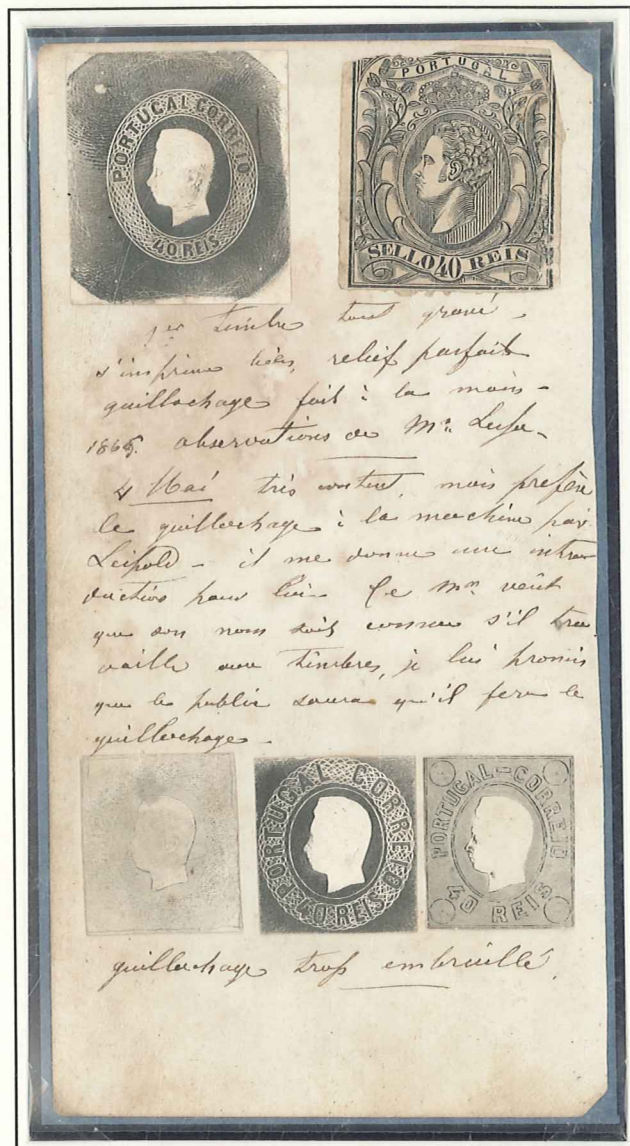 PORTUGAL CORREIO
40 REIS
PORTUGAL
SELLO 40 REIS
1er timbre tout gravé,
s'imprime bien, relief parfait
guillochage fait à la main -
1865. observations de Mr.
4 Mai très content, mais préfère
le guillochage à la machine par
Leipold - il me donne une intro
duction pour lui. Ce Mr. veut
que son nom soit connu s'il tra
vaille aux timbres, je lui promis
que le public saura qu'il fera le
guillochage -
PORTUGAL CORREIO
40 REIS
PORTUGAL-CORREIO
40 REIS
guillochage trop embruillé